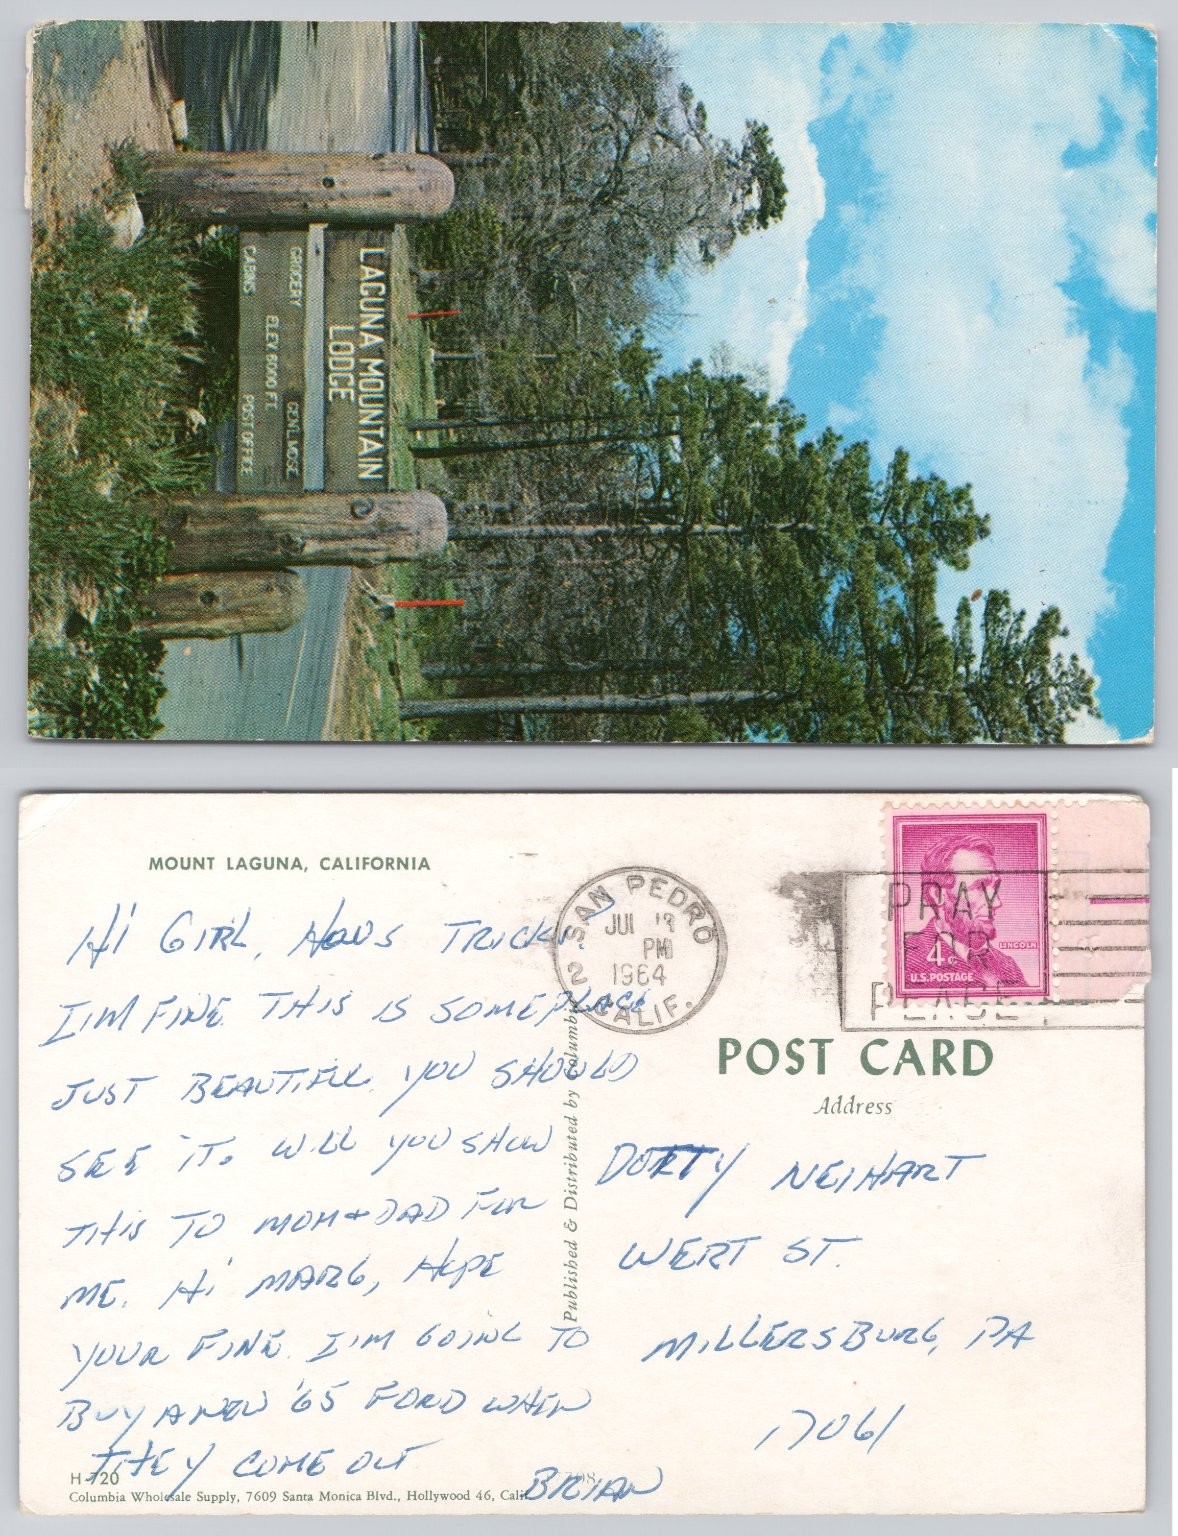 LAGUNA MOUNTAIN
LODGE
GROCERY GEN'L MDSE
ELEV. 6000 FT.
CABINS POST OFFICE
MOUNT LAGUNA, CALIFORNIA
HI GIRL, HOWS TRICKS,
I'IM FINE. THIS IS SOMEPLACE
JUST BEAUTIFUL. YOU SHOULD
SEE IT. WILL YOU SHOW
THIS TO MOM & DAD FOR
ME. HI MARG, HOPE
YOUR FINE. I'M GOING TO
BUY A NEW '65 FORD WHEN
THEY COME OUT
BRIAN
H-720
Columbia Wholesale Supply, 7609 Santa Monica Blvd., Hollywood 46, Calif.
Published & Distributed by Columbia
SAN PEDRO
JUL 19
PM
1964
2 CALIF.
PRAY
FOR
PEACE
LINCOLN
4c
U.S. POSTAGE
POST CARD
Address
DOTTY NEIHART
WERT ST.
MILLERSBURG, PA
17061